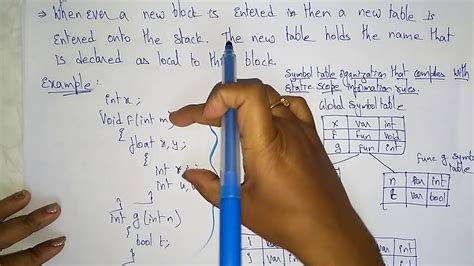 → When ever a new block is Entered is then a new table is
Entered onto the stack. The new table holds the name that
is declared as local to the block
Example:
int x;
Void f(int m
{
float x, y;
{
int
int u,
}
}
int g (int n)
{
bool t;
}
Symbol table organization that complies with
static scope information rules.
Global symbol table
x var int
f fun void
g fun int
func g symb
table
n par int
t var bool